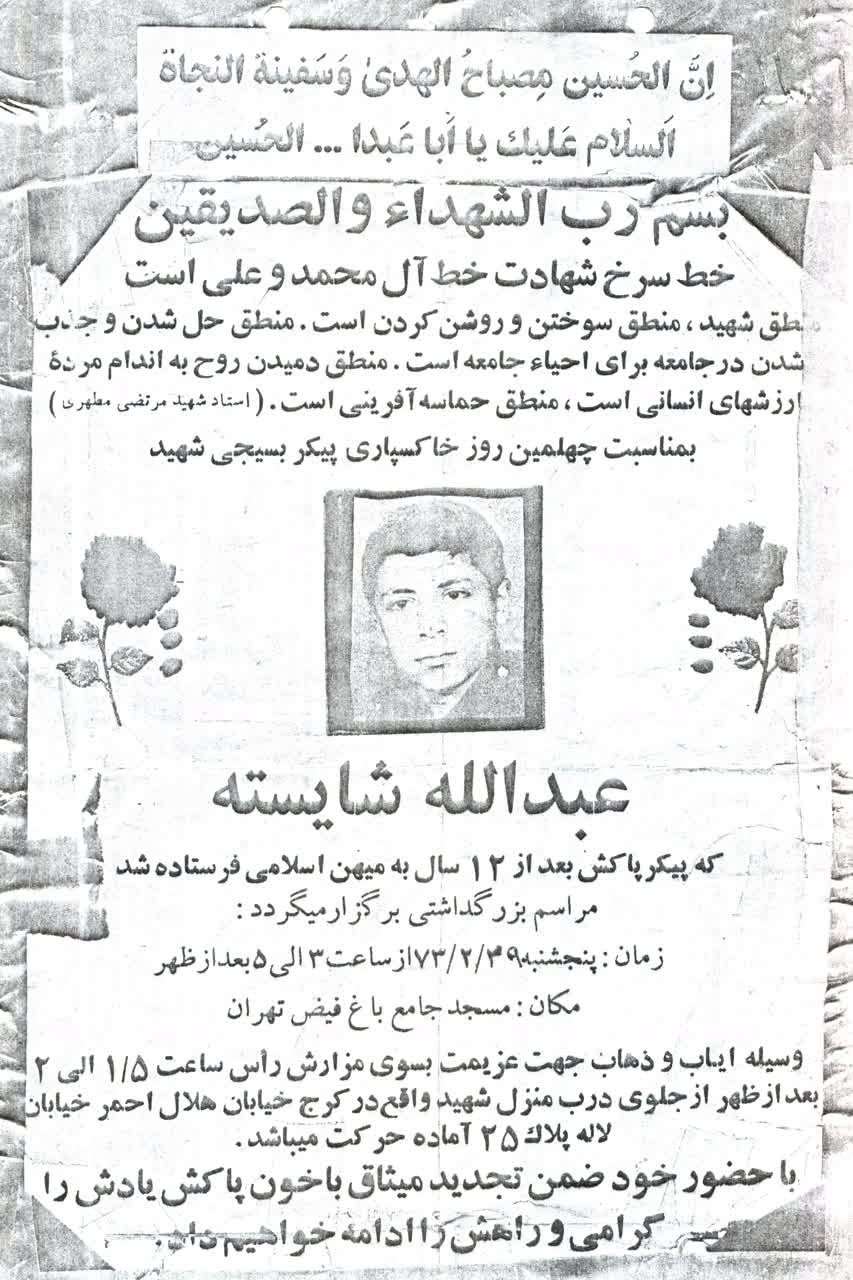 اِنَّ الحُسین مِصباحُ الهدیٰ وَسَفینة النجاة
اَلسلام عَلیك یا اَبا عَبدا ... الحُسین
بسم رب الشهداء والصدیقین
خط سرخ شهادت خط آل محمد و علی است
منطق شهید ، منطق سوختن و روشن کردن است . منطق حل شدن و جذب
شدن در جامعه برای احیاء جامعه است . منطق دمیدن روح به اندام مردهٔ
ارزشهای انسانی است ، منطق حماسه آفرینی است . ( استاد شهید مرتضی مطهری )
بمناسبت چهلمین روز خاکسپاری پیکر بسیجی شهید
عبدالله شایسته
که پیکر پاکش بعد از ۱۲ سال به میهن اسلامی فرستاده شد
مراسم بزرگداشتی برگزار میگردد :
زمان : پنجشنبه ۷۳/۲/۲۹ از ساعت ۳ الی ۵ بعد از ظهر
مکان : مسجد جامع باغ فیض تهران
وسیله ایاب و ذهاب جهت عزیمت بسوی مزارش رأس ساعت ۱/۵ الی ۲
بعد از ظهر از جلوی درب منزل شهید واقع در کرج خیابان هلال احمر خیابان
لاله پلاك ۲۵ آماده حرکت میباشد .
با حضور خود ضمن تجدید میثاق با خون پاکش یادش را
گرامی و راهش را ادامه خواهیم داد .